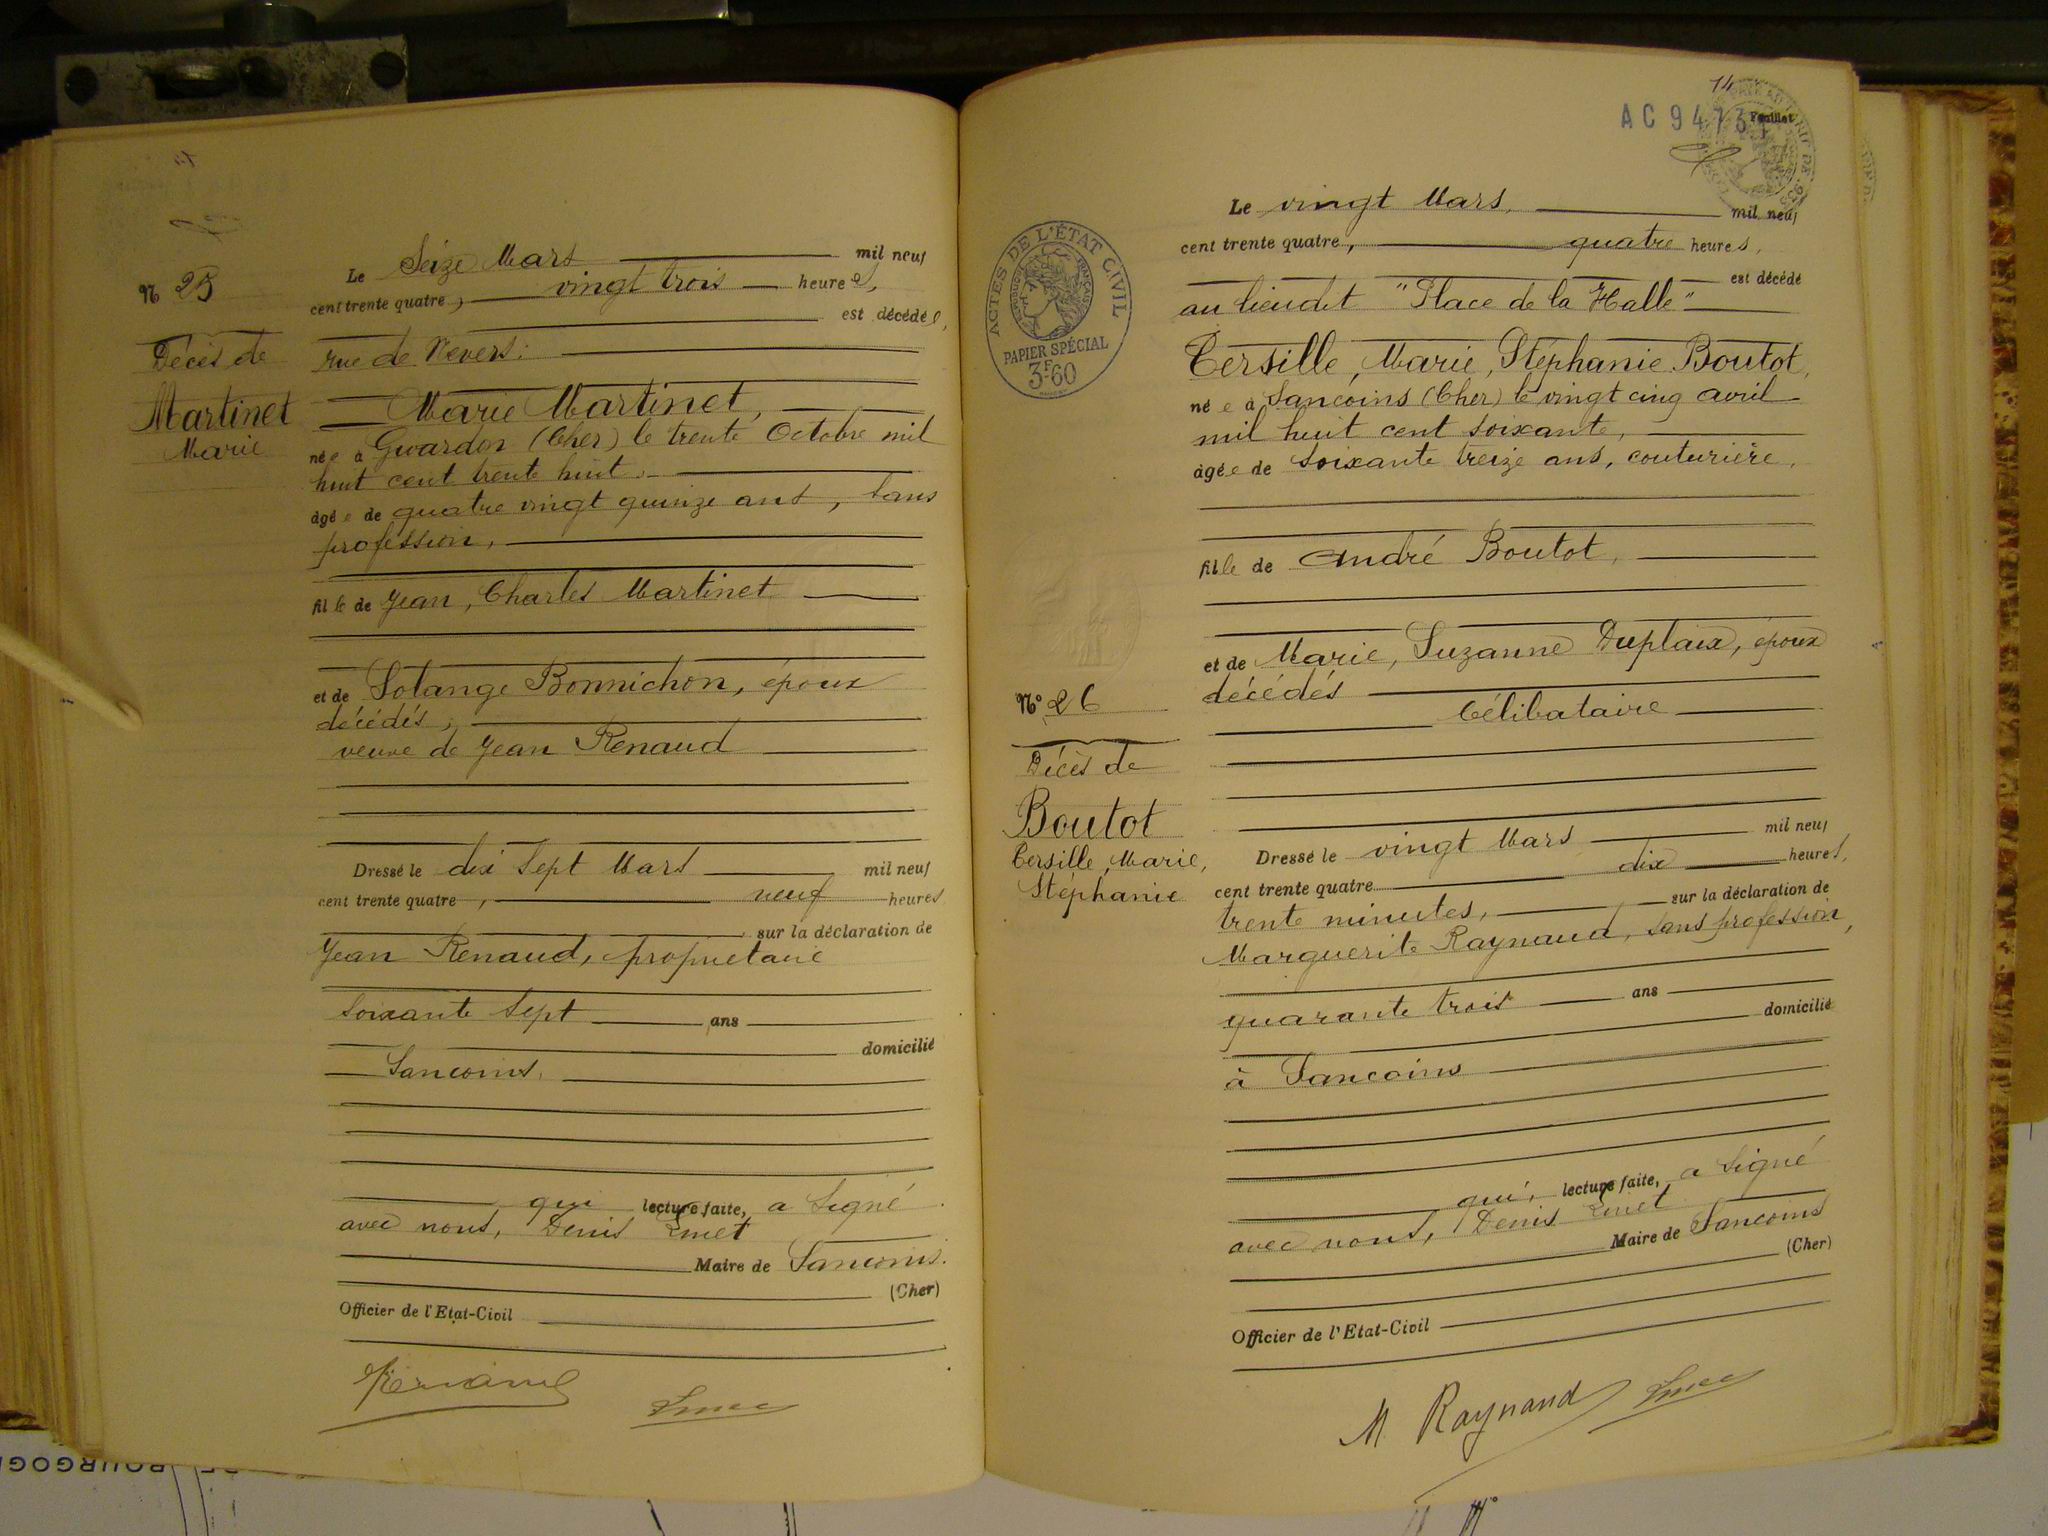 Le Seize Mars mil neuf
cent trente quatre, vingt trois heures,
est décédée,
rue de Nevers.
N 25
Décès de
Martinet
Marie
Marie Martinet,
née à Givardon (Cher) le trente Octobre mil
huit cent trente huit,
âgée de quatre vingt quinze ans, sans
profession,
fille de Jean, Charles Martinet
et de Solange Bonnichon, époux
décédés,
veuve de Jean Renaud
Dressé le dix sept Mars mil neuf
cent trente quatre, neuf heures
sur la déclaration de
Jean Renaud, propriétaire
soixante sept ans
domicilié
Sancoins.
qui lecture faite, a signé
avec nous, Denis
Maire de Sancoins.
(Cher)
Officier de l'Etat-Civil
Renaud
14
AC 9473 Feuillet
ACTES DE L'ÉTAT CIVIL
PAPIER SPÉCIAL
3F60
Le vingt Mars, mil neuf
cent trente quatre, quatre heures,
est décédé
au lieudit "Place de la Halle"
Tersille, Marie, Stéphanie Boutot,
née à Sancoins (Cher) le vingt cinq avril
mil huit cent soixante,
âgée de soixante treize ans, couturière,
fille de André Boutot,
et de Marie, Suzanne Duplaix, époux
décédés
Célibataire
N° 26
Décès de
Boutot
Tersille, Marie,
Stéphanie
Dressé le vingt Mars mil neuf
cent trente quatre dix heures,
trente minutes, sur la déclaration de
Marguerite Raynaud, sans profession,
quarante trois ans
domicilié
à Sancoins
qui, lecture faite, a signé
avec nous, Denis
Maire de Sancoins
(Cher)
Officier de l'Etat-Civil
M Raynaud